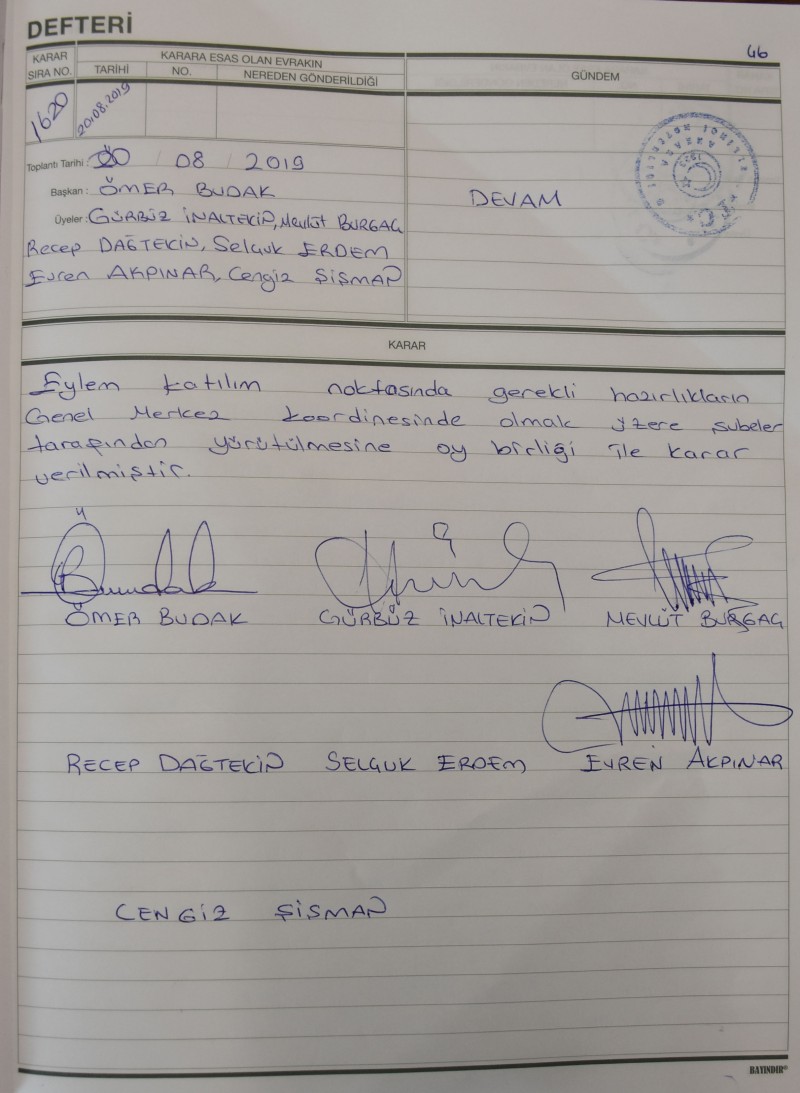 DEFTERİ
46
KARAR SIRA NO.
KARARA ESAS OLAN EVRAKIN
TARİHİ
NO.
NEREDEN GÖNDERİLDİĞİ
GÜNDEM
1620
20.08.2019
Toplantı Tarihi : 20 / 08 / 2019
Başkan : ÖMER BUDAK
Üyeler : GÜRBÜZ İNALTEKİN, Mevlüt BURGAÇ
Recep DAĞTEKİN, Selçuk ERDEM
Evren AKPINAR, Cengiz ŞİŞMAN
DEVAM
KARAR
Eylem katılım noktasında gerekli hazırlıkların
Genel Merkez koordinesinde olmak üzere şubeler
tarafından yürütülmesine oy birliği ile karar
verilmiştir.
ÖMER BUDAK GÜRBÜZ İNALTEKİN MEVLÜT BURGAÇ
RECEP DAĞTEKİN SELÇUK ERDEM EVREN AKPINAR
CENGİZ ŞİŞMAN
BAYINDIR®